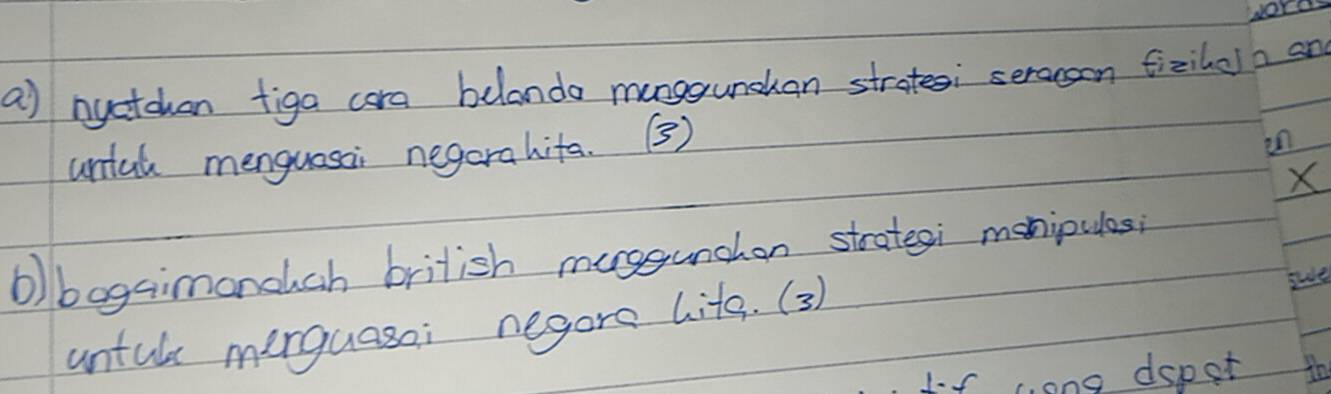 a) nyatakan tiga cara belanda menggunakan strategi serangan fizikal
untuk menguasai negara kita. (3)
b) bagaimanakah british menggunakan strategi manipulasi
untuk menguasai negara kita. (3)
yang dapat
X